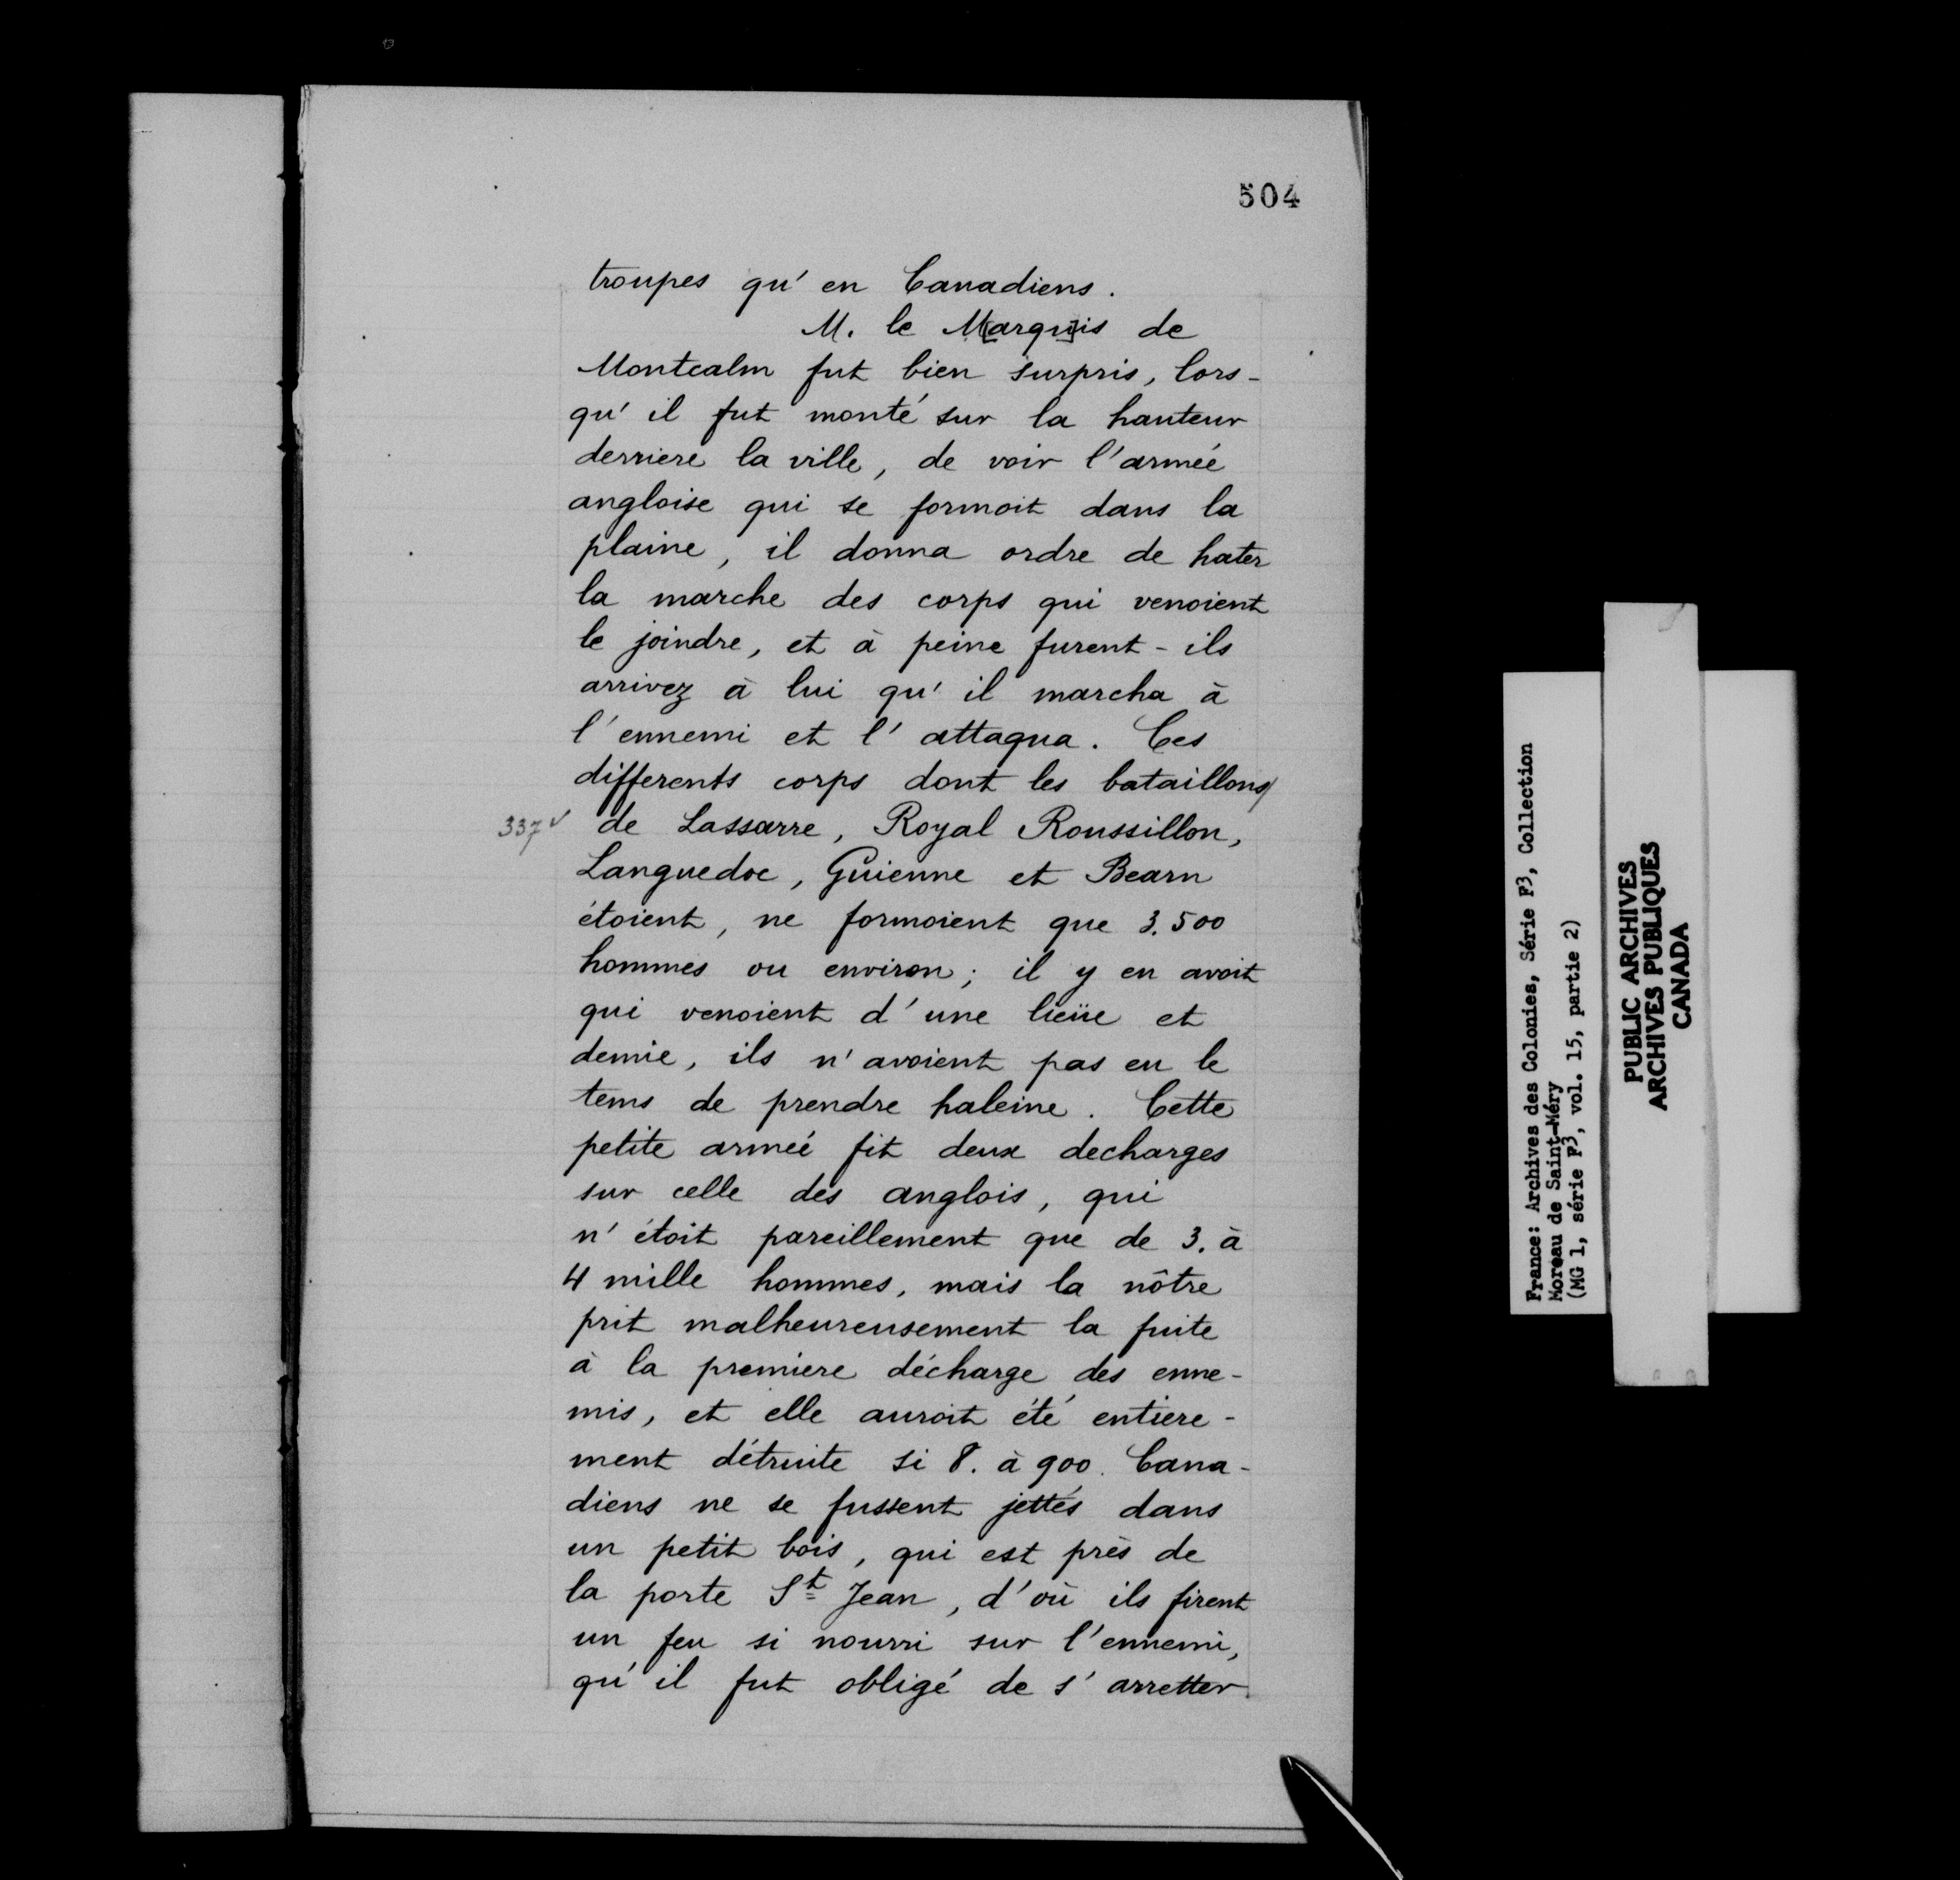 504
troupes qu'en Canadiens.
M. le M[arqu]is de
Montcalm fut bien surpris, lors-
qu'il fut monté sur la hauteur
derriere la ville, de voir l'armée
angloise qui se formoit dans la
plaine, il donna ordre de hater
la marche des corps qui venoient
le joindre, et à peine furent-ils
arrivez à lui qu'il marcha à
l'ennemi et l'attaqua. Ces
differents corps dont les bataillons/
337v de Lassarre, Royal Roussillon,
Languedoc, Guienne et Bearn
étoient, ne formoient que 3.500
hommes ou environ; il y en avoit
qui venoient d'une lieüe et
demie, ils n'avoient pas eu le
tems de prendre haleine. Cette
petite armée fit deux decharges
sur celle des anglois, qui
n'étoit pareillement que de 3. à
4 mille hommes, mais la nôtre
prit malheureusement la fuite
à la premiere décharge des enne-
mis, et elle auroit été entiere-
ment détruite si 8. à 900. Cana-
diens ne se fussent jettés dans
un petit bois, qui est près de
la porte St Jean, d'où ils firent
un feu si nourri sur l'ennemi,
qu'il fut obligé de s'arretter
France: Archives des Colonies, Série F3, Collection
Moreau de Saint-Méry
(MG 1, série F3, vol. 15, partie 2)
PUBLIC ARCHIVES
ARCHIVES PUBLIQUES
CANADA